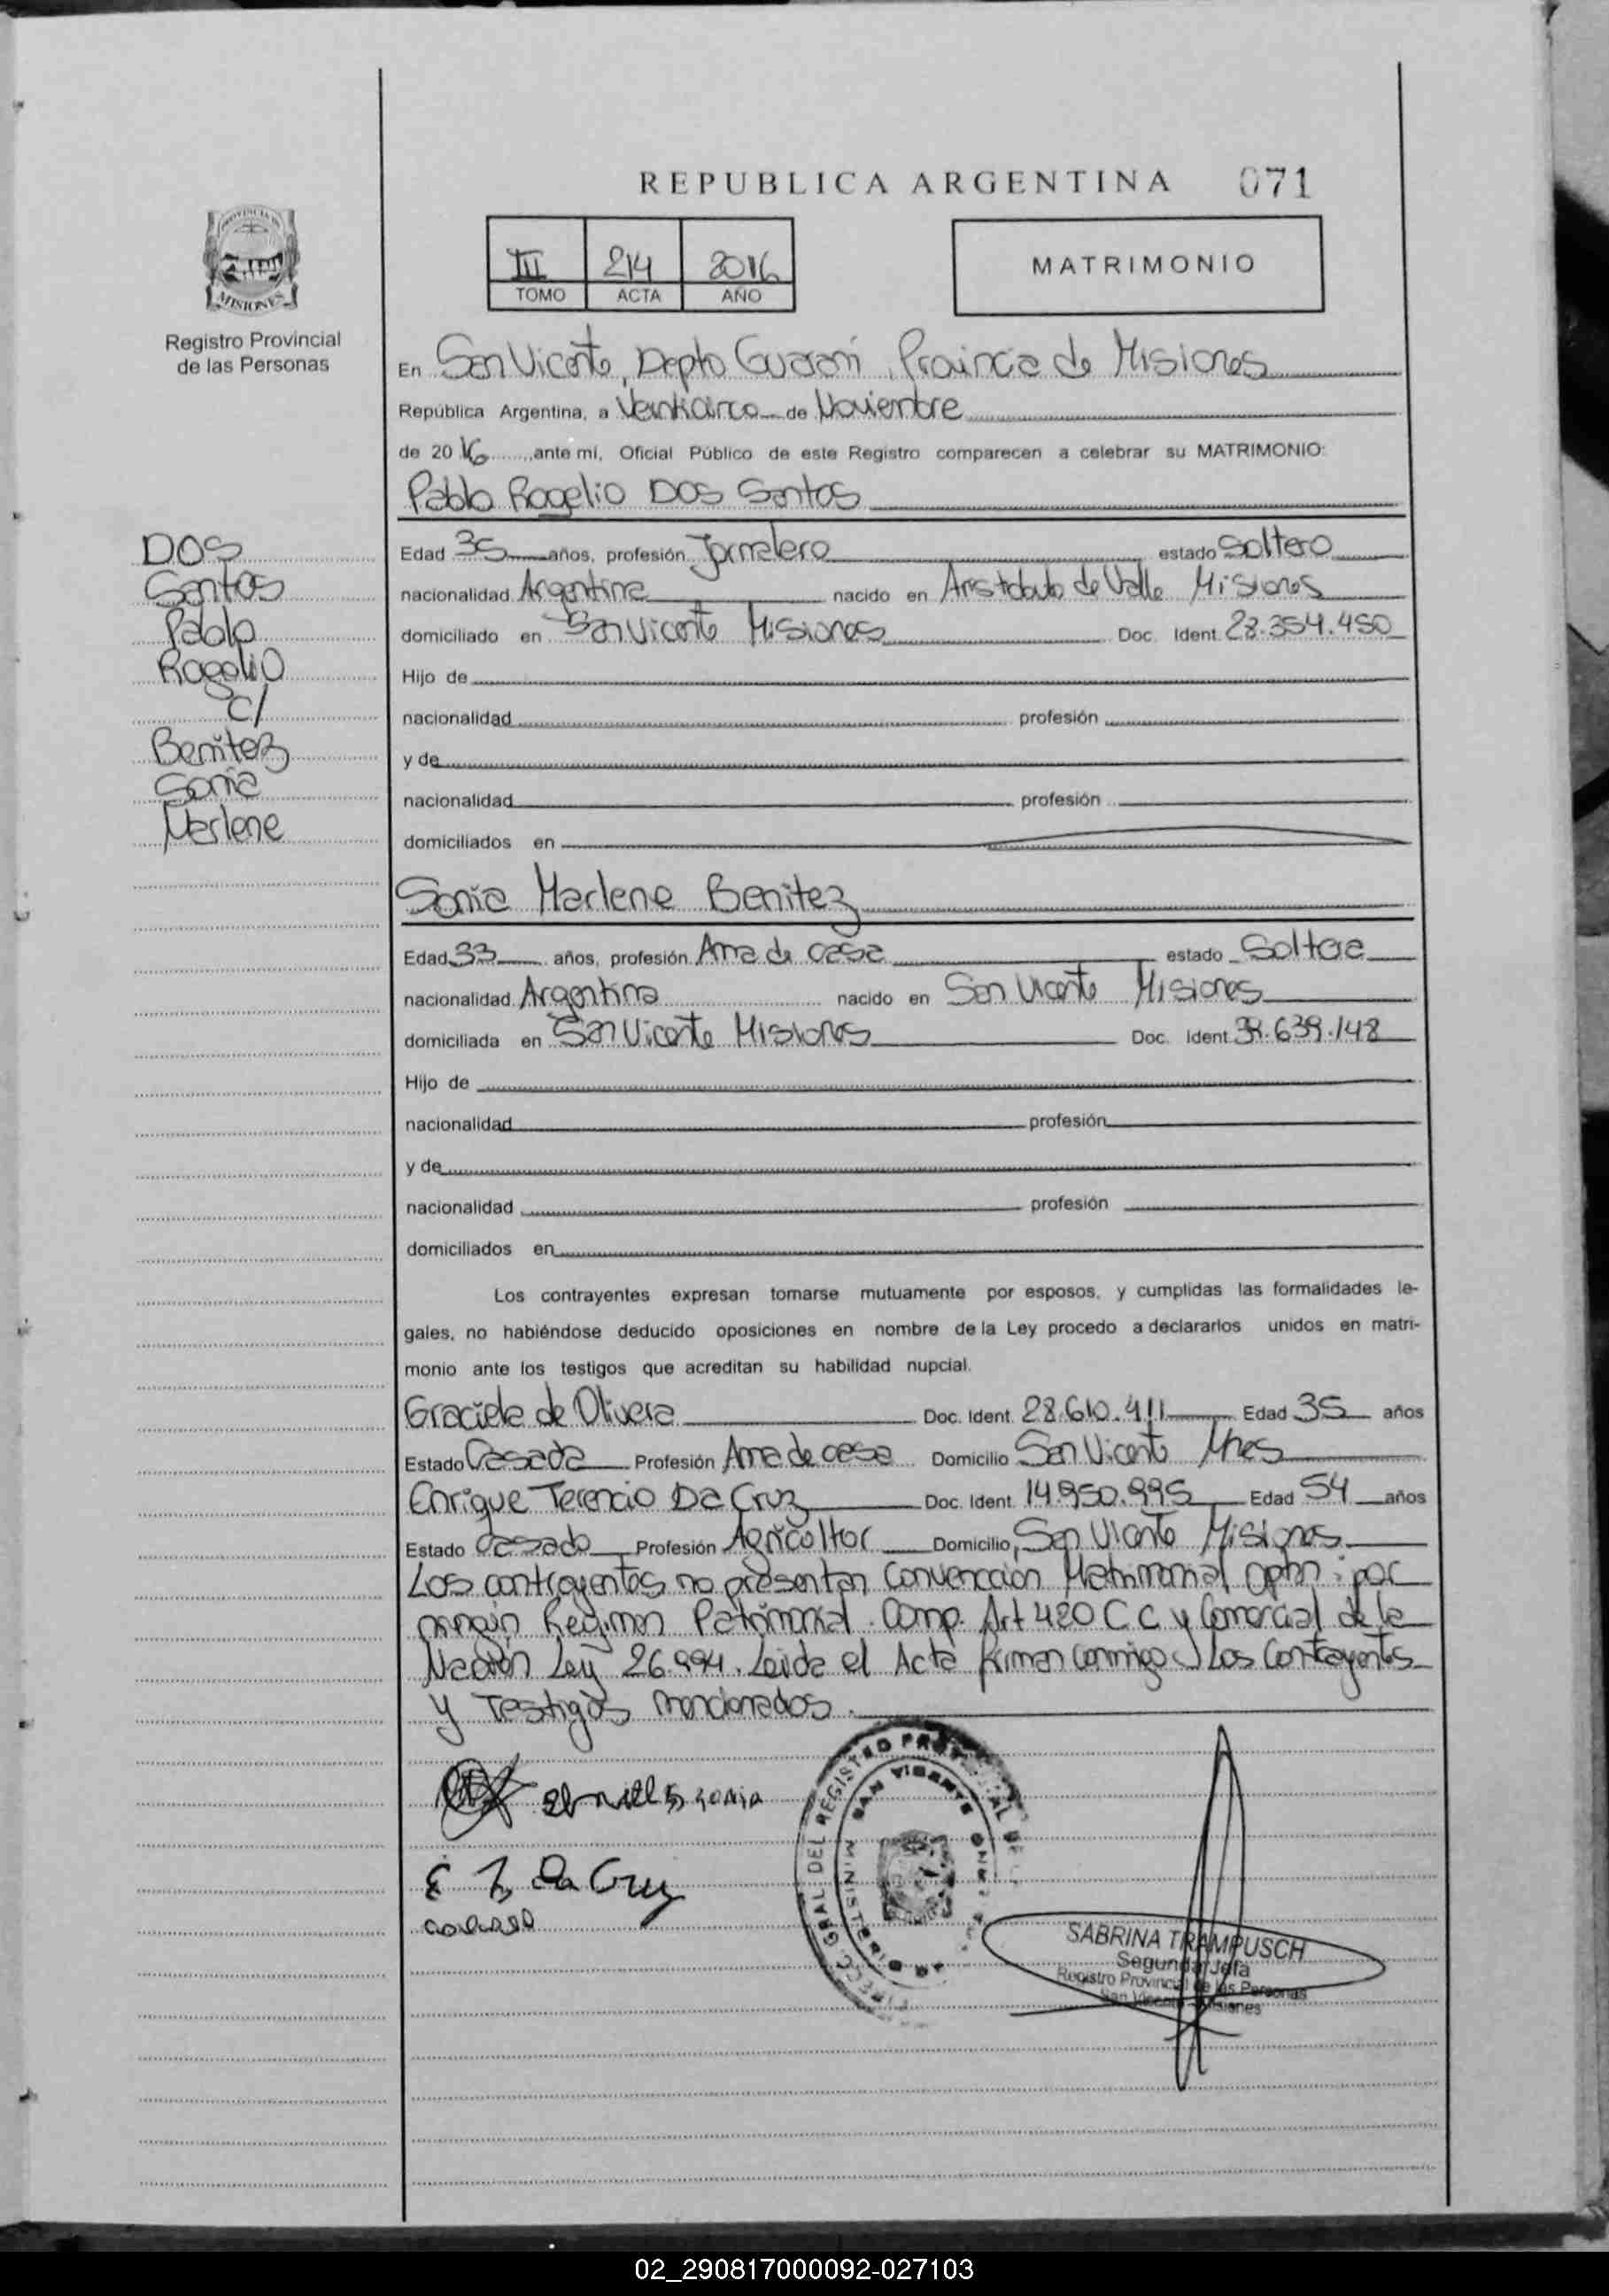 REPUBLICA ARGENTINA 071
PROVINCIA DE
MISIONES
Registro Provincial
de las Personas
III 214 2016
TOMO ACTA AÑO
MATRIMONIO
En San Vicente, Depto Guaraní, Provincia de Misiones
República Argentina, a Veinticinco de Noviembre
de 2016 ante mi, Oficial Público de este Registro comparecen a celebrar su MATRIMONIO:
Pablo Rogelio DOS Santos
DOS
Santos
Pablo
Rogelio
C/
Benitez
Sonia
Marlene
Edad 35 años, profesión Jornalero estado Soltero
nacionalidad Argentina nacido en Aristobulo de Valle Misiones
domiciliado en San Vicente Misiones Doc. Ident. 28.354.450
Hijo de
nacionalidad profesión
y de
nacionalidad profesión
domiciliados en
Sonia Marlene Benitez
Edad 33 años, profesión Ama de casa estado Soltera
nacionalidad Argentina nacido en San Vicente Misiones
domiciliada en San Vicente Misiones Doc. Ident. .639.148
Hijo de
nacionalidad profesión
y de
nacionalidad profesión
domiciliados en
Los contrayentes expresan tomarse mutuamente por esposos, y cumplidas las formalidades le-
gales, no habiéndose deducido oposiciones en nombre de la Ley procedo a declararlos unidos en matri-
monio ante los testigos que acreditan su habilidad nupcial.
Graciela de Olivera Doc. Ident. 28.610.411 Edad 35 años
Estado Casada Profesión Ama de casa Domicilio San Vicente Mnes
Enrique Terencio Da Cruz Doc. Ident. 14.950.995 Edad 54 años
Estado Casado Profesión Agricultor Domicilio San Vicente Misiones
Los contrayentes no presentan Convencion Matrimonial optan por
ningún Regimen Patrimonial. Comp. Art 420 C C y Comercial de la
Nación Ley 26.994. Leida el Acta firman conmigo Los Contrayentes
y Testigos mencionados.
Sonia
E T Da Cruz
GRAL DEL REGISTRO
SAN VICENTE
MINISTERIO
SABRINA TRAMPUSCH
Segunda Jefa
Registro Provincial de las Personas
San Vicente - Misiones
02_290817000092-027103